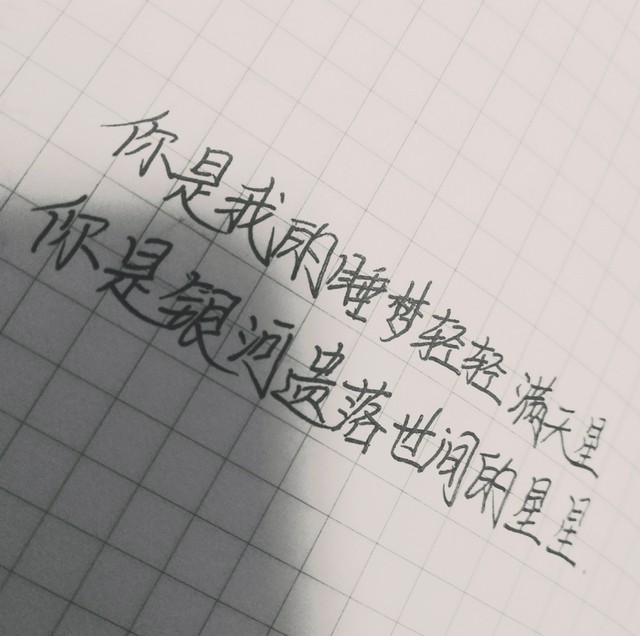 你是我的睡梦轻轻满天星
你是银河遗落世间的星星